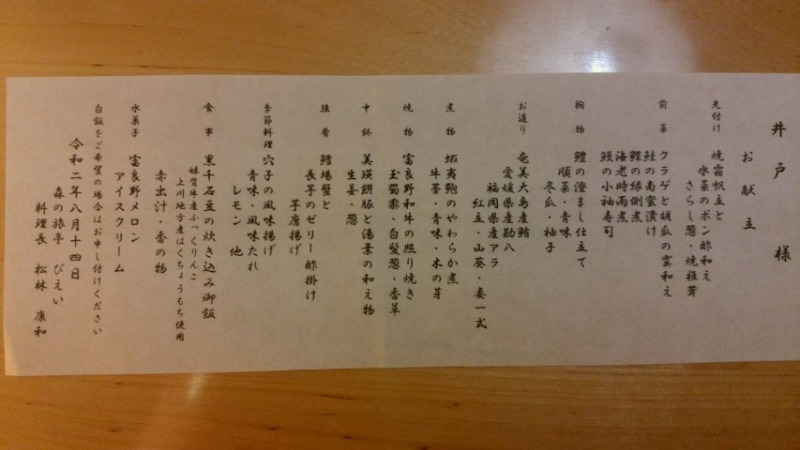 井戸 様
お献立
先付け 焼霜帆立と
水菜のポン酢和え
さらし葱・焼椎茸
前菜 クラゲと胡瓜の雲和え
鮭の南蛮漬け
鰈の縁側煮
海老時雨煮
鰻の小袖寿司
椀物 鱧の澄まし仕立て
順菜・青味
冬瓜・柚子
お造り 奄美大島産鮪
愛媛県産勘八
福岡県産アラ
紅立・山葵・妻一式
煮物 蝦夷鮑のやわらか煮
牛蒡・青味・木の芽
焼物 富良野和牛の照り焼き
玉蜀黍・白髪葱・香草
中鉢 美瑛餅豚と湯葉の和え物
生姜・葱
強肴 鱈場蟹と
長芋のゼリー酢掛け
芋唐揚げ
季節料理 穴子の風味揚げ
青味・風味たれ
レモン 他
食事 黒千石豆の炊き込み御飯
妹背牛産ふっくりんこ
上川地方産はくちょうもち使用
赤出汁・香の物
水菓子 富良野メロン
アイスクリーム
白飯をご希望の場合はお申し付けください
令和二年八月十四日
森の旅亭 びえい
料理長 松林 康和